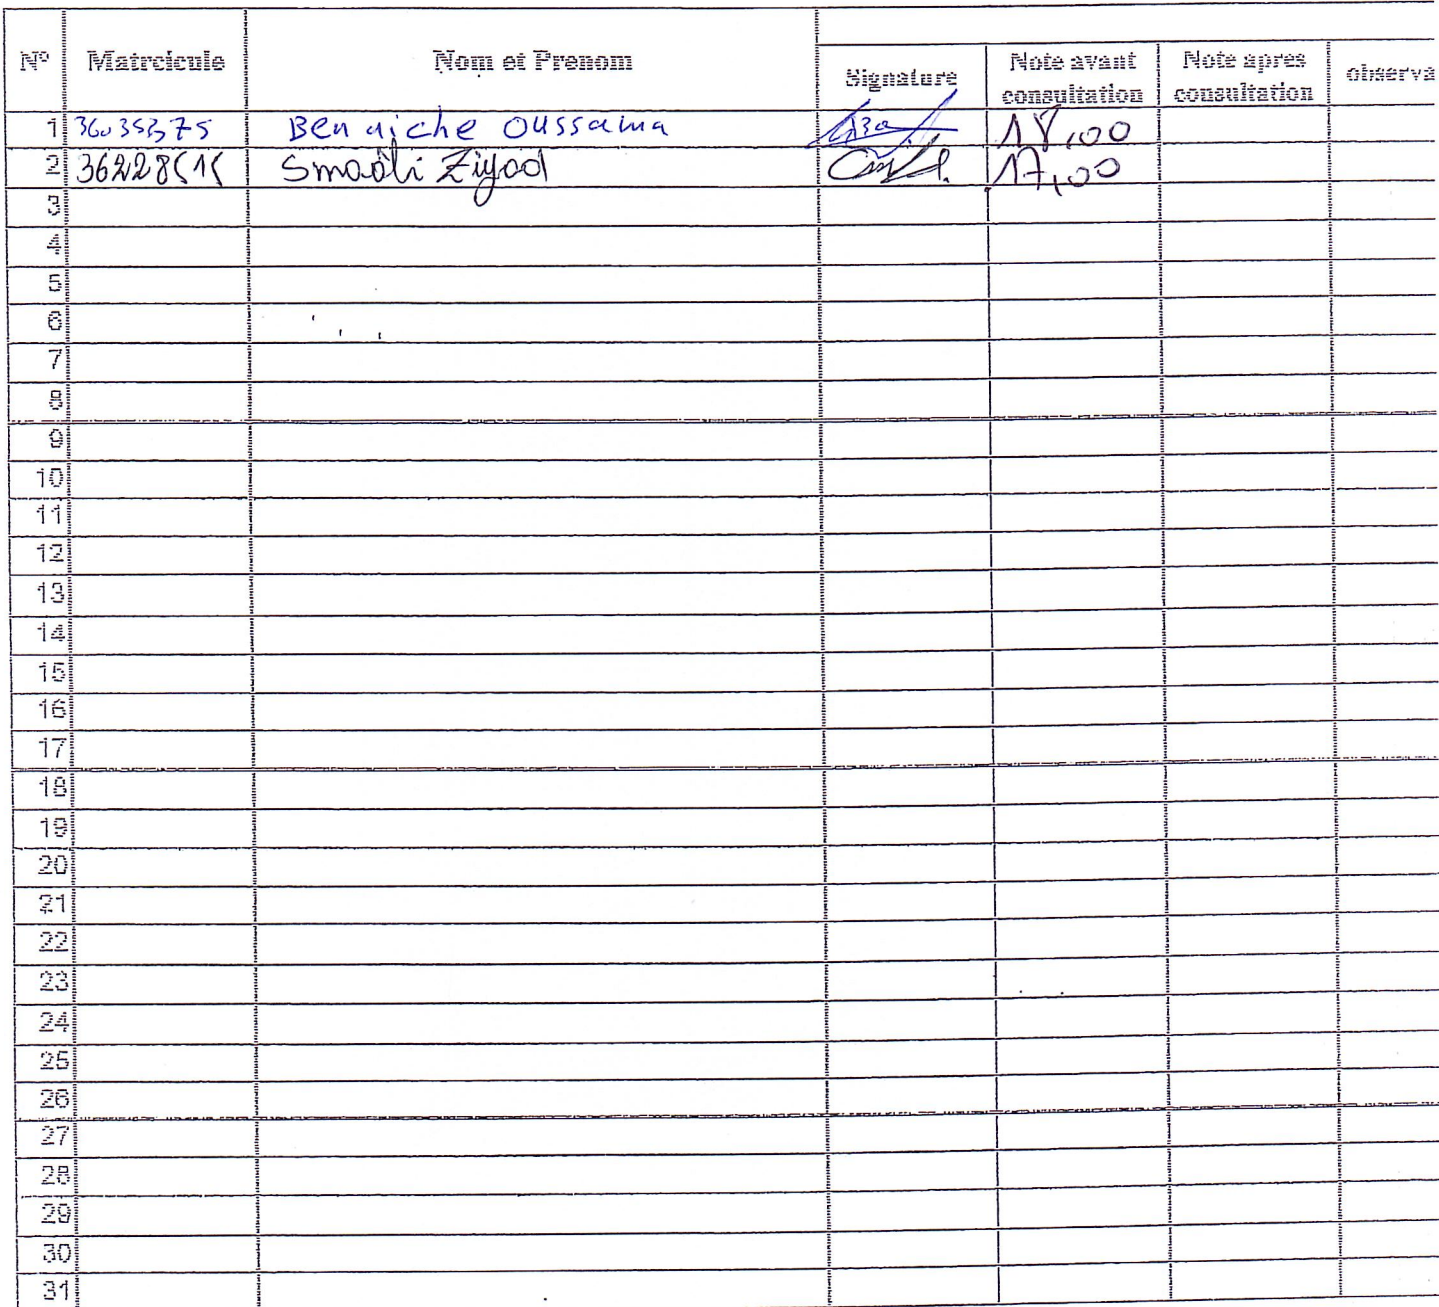 N° Matrcicule Nom et Prenom Signature Note avant consultation Note apres consultation observa
1 36035375 Ben aiche oussama 18,00
2 36228515 Smaali Ziyad 17,00
3
4
5
6
7
8
9
10
11
12
13
14
15
16
17
18
19
20
21
22
23
24
25
26
27
28
29
30
31